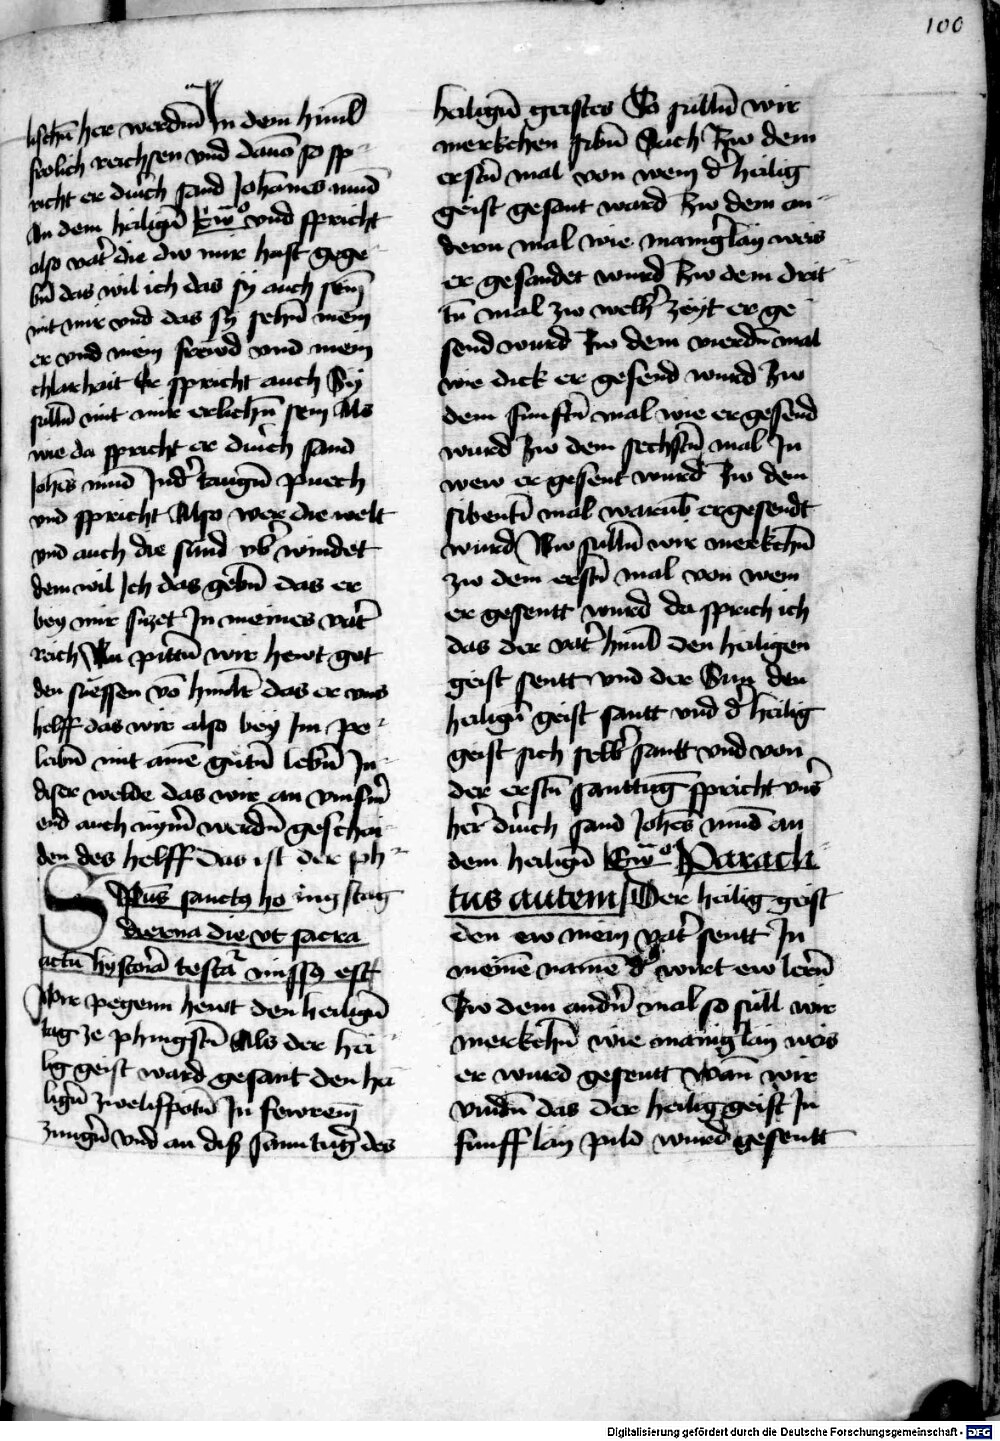 100
lischn̄ her werdn̄ In dem himl̄
frolich reichsen vnd dauō so sp-
richt er durch sand Johānes mūd
An dem heilign̄ Ewº vnd spricht
also vat̾ die dw mir hast gege-
bn̄ das wil ich das sy auch sein̄
mit mir vnd das sy sehn̄ mein
er vnd mein frewd vnd mein
chlarhait Er spricht auch Sy
sulln̄ mit mir erlichn̄ sein Als
wie da spricht er durch sand
Johēs mūd In d̾ taugn̄ puech
vnd spricht Also wer die welt
vnd auch die sund vb̾windet
dem wil Ich das gebn̄ das er
bey mir sizet In meines vat̾
reich Nu pittn̄ wir hewt got
den suessen vō himl̄r das er vns
helff das wir also bey Im pe-
leibn̄ mit aīnē gutn̄ lebn̄ In-
diser welde das wir an vnsm̄
end auch nym̄ werdn̄ geschai-
den des helff Das ist der ph-
Spūs sanctꝯ ho ing stag
dierna die vt sacra
actū hystoria testat̄ missꝯ est
Wir pegenn hewt den heilign̄
tag ze phingstn̄ Als der hei-
lig geist ward gesant den hei
lign̄ zwelifpotn̄ In fewrein̄
zungn̄ vnd an diss sanntug̾ des
heilign̄ geistes So sulln̄ wir
merkchen sibn̄ Sach Zw dem
erstn̄ mal von wem d̾ heilig
geist gesant ward Zw dem an-
dern mal wie manig̾lay weis
er gesandet wurd Zw dem drit-
tn̄ mal zw welh̾ zeyt er ge
send wurd Zw dem vierdn̄ mal
wie dick er gesend wurd Zw
dem funftn̄ mal wie er gesend
wurd Zw dem sechstn̄ mal In
wew er gesent wurd Zw dem
sibentn̄ mal warūb er gesendt
wurd Nw sulln̄ wir merkchn̄
zw dem erstn̄ mal von wem
er gesentt wurd da sprich ich
das der vat̾ himl̄ den heiligen
geist sentt vnd der Sun den
heilign̄ geist santt vnd d̾ heilig
geist sich selb̾ santt vnd von
der erstn̄ santtug̾ spricht vns̾
her̾ durch sand Johēs mūd an
dem heilign̄ Ewº Paracli-
tus autem Der heilig geist
den ew mein vat̾ sentt In
meinē namē d̾ wirt ew lern̄
Zw dem andn̄ mal so sull wir
merkchn̄ wie manig̾lay weis
er wurd gesentt wān wir
vindn̄ das der heilig geist In
funff lay pild wurd gesentt
Digitalisierung gefördert durch die Deutsche Forschungsgemeinschaft - DFG